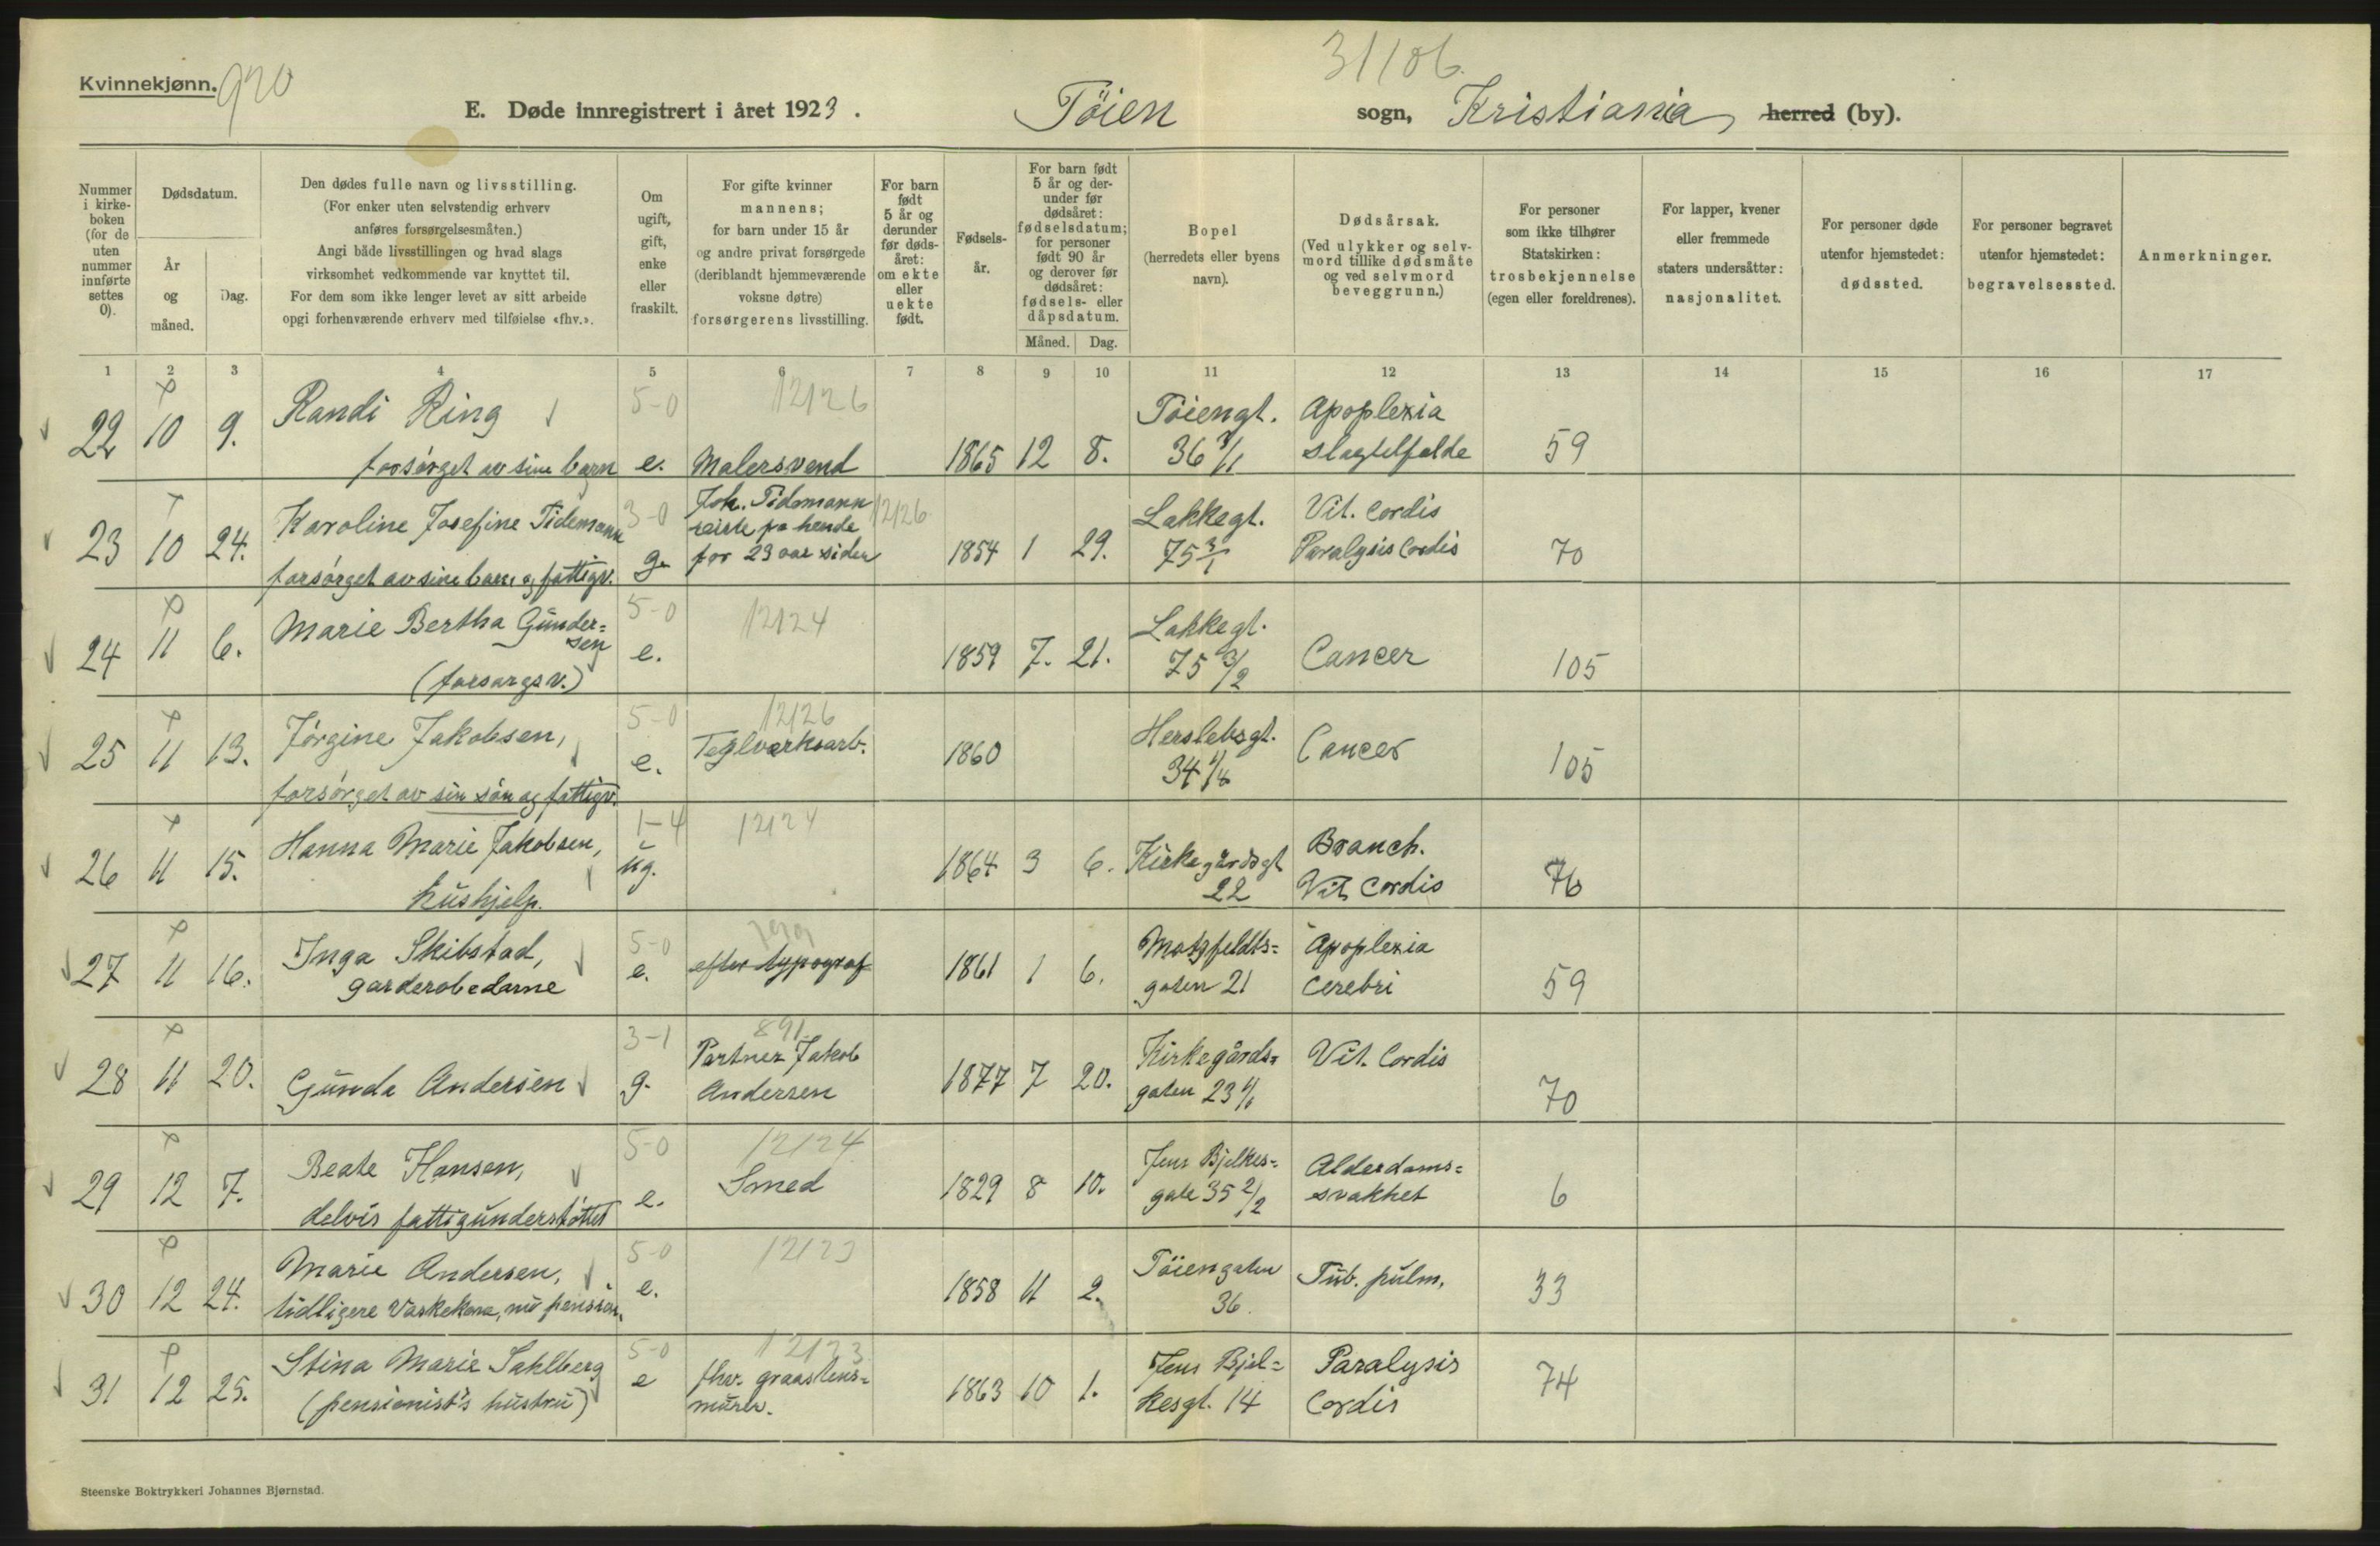 Kvinnekjønn. 920
31106
E. Døde innregistrert i året 1923. Töien sogn, Kristiania herred (by).
Nummer i kirkeboken (for de uten nummer innførte settes 0).
Dødsdatum.
År og måned.
Dag.
Den dødes fulle navn og livsstilling.
(For enker uten selvstendig erhverv
anføres forsørgelsesmåten.)
Angi både livsstillingen og hvad slags
virksomhet vedkommende var knyttet til.
For dem som ikke lenger levet av sitt arbeide
opgi forhenværende erhverv med tilføielse «fhv.».
Om ugift, gift, enke eller fraskilt.
For gifte kvinner
mannens;
for barn under 15 år
og andre privat forsørgede
(deriblandt hjemmeværende
voksne døtre)
forsørgerens livsstilling.
For barn født 5 år og derunder før dødsåret: om ekte eller uekte født.
Fødsels-år.
For barn født 5 år og derunder før dødsåret: fødselsdatum; for personer født 90 år og derover før dødsåret: fødsels- eller dåpsdatum.
Måned. Dag.
Bopel
(herredets eller byens
navn).
Dødsårsak.
(Ved ulykker og selvmord tillike dødsmåte og ved selvmord beveggrunn.)
For personer
som ikke tilhører
Statskirken:
trosbekjennelse
(egen eller foreldrenes).
For lapper, kvener
eller fremmede
staters undersåtter:
nasjonalitet.
For personer døde
utenfor hjemstedet:
dødssted.
For personer begravet
utenfor hjemstedet:
begravelsessted.
Anmerkninger.
1 2 3 4 5 6 7 8 9 10 11 12 13 14 15 16 17
22 10 9. Randi Ring 5-0 12126 Töiengt. Apoplexia
forsörget av sine barn e. Malersvend 1865 12 8. 36 slagtilfelde 59
23 10 24. Karoline Josefine Tidemann 3-0 Joh. Tidemann 12126 Lakkegt. Vit. Cordis
reiste fra hende
forsörget av sine barn og fattigv. g. for 23 aar siden 1854 1 29. 75 3/1 Paralysis Cordis 70
24 11 6. Marie Bertha Gunder= 5-0 12124 Lakkegt.
sen
(forsorgsv.) e. 1859 7. 21. 75 3/2 Cancer 105
25 11 13. Jörgine Jakobsen, 5-0 12126 Herslebsgt. Cancer
forsörget av sin sön og fattigv. e. Teglverksarb. 1860 34 105
26 11 15. Hanna Marie Jakobsen, 1-4 12124 Kirkegårdsgt Branch.
hushjelp. ug. 1864 3 6. 22 Vit. Cordis 76
27 11 16. Inga Skibstad, 5-0 Motzfeldts= Apoplexia
garderobedame e. efter typograf 1861 1 6. gaten 21 cerebri 59
28 11 20. 3-1 891 Partner Jakob Kirkegårds= Vit. Cordis
Gunda Andersen g. Andersen 1877 7 20. gaten 23 70
29 12 7. Beate Hansen, 5-0 12124 Jens Bjelkes= Alderdoms=
delvis fattigunderstöttet e. Smed 1829 8 10. gate 35 2/2 svakhet 6
30 12 24. Marie Andersen, 5-0 12123 Töiengaten Tub. pulm.
tidligere Vaskekone, nu pension. e. 1858 11 2. 36. 33
31 12 25. Stina Marie Sahlberg 5-0 12123 Jens Bjel= Paralysis
(pensionist's hustru) e fhv. graastens= murer. 1863 10 1. kesgt. 14 Cordis 74
Steenske Boktrykkeri Johannes Bjørnstad.